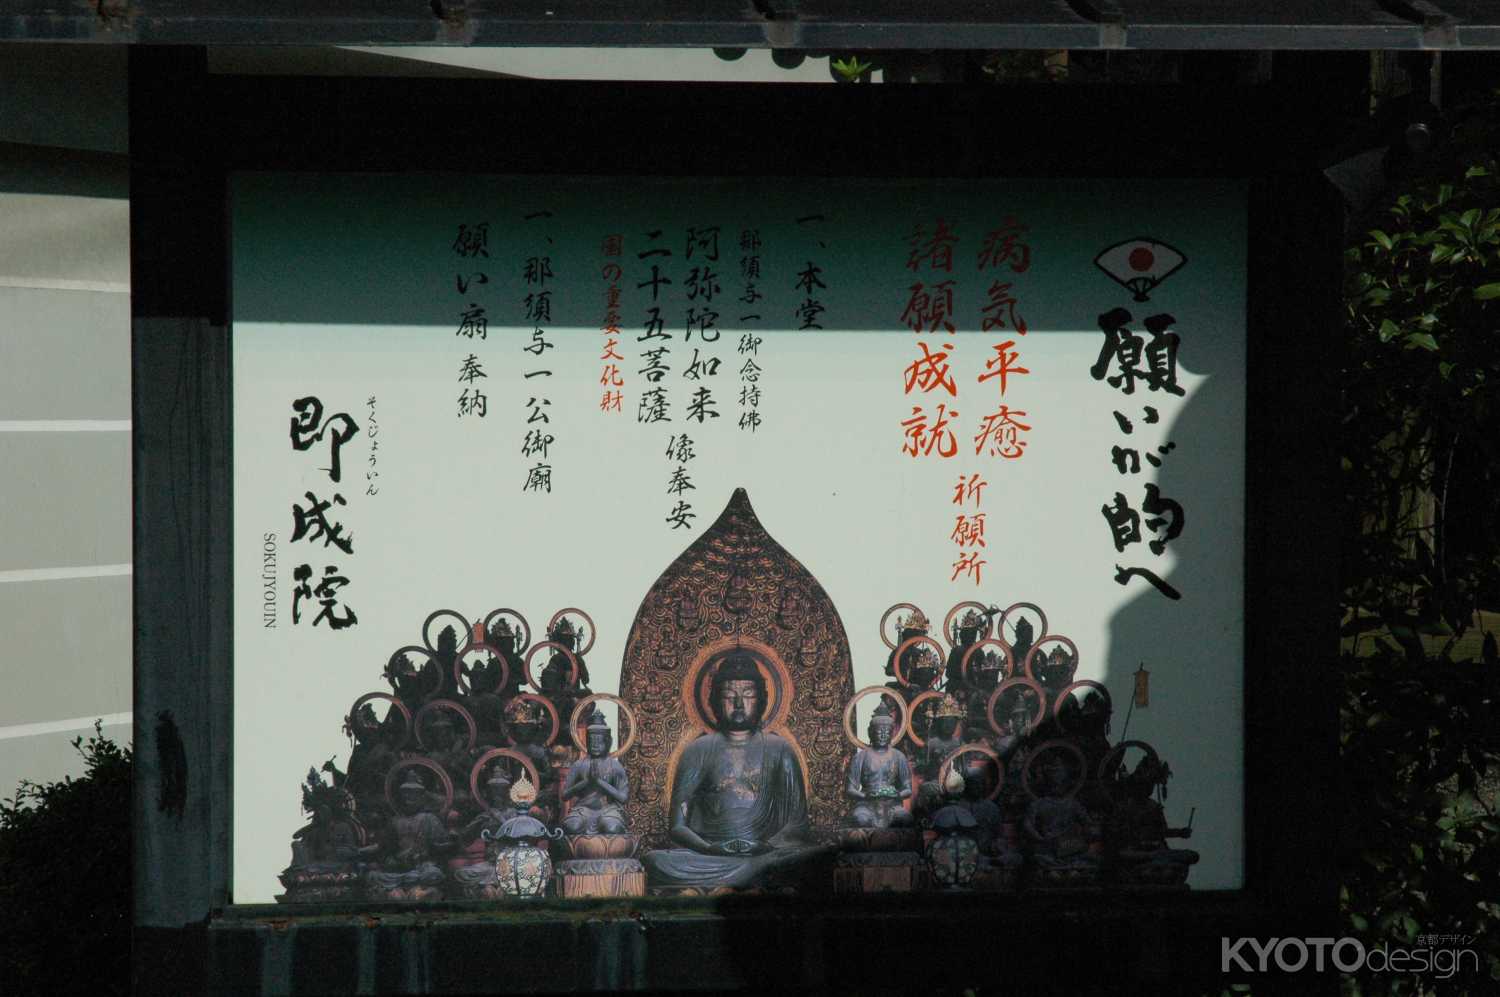 願いが的へ
病気平癒
諸願成就
祈願所
一、本堂
那須与一御念持佛
阿弥陀如来
二十五菩薩
像奉安
国の重要文化財
一、那須与一公御廟
願い扇奉納
そくじょういん
即成院
SOKUJYOUIN
京都デザイン
KYOTOdesign